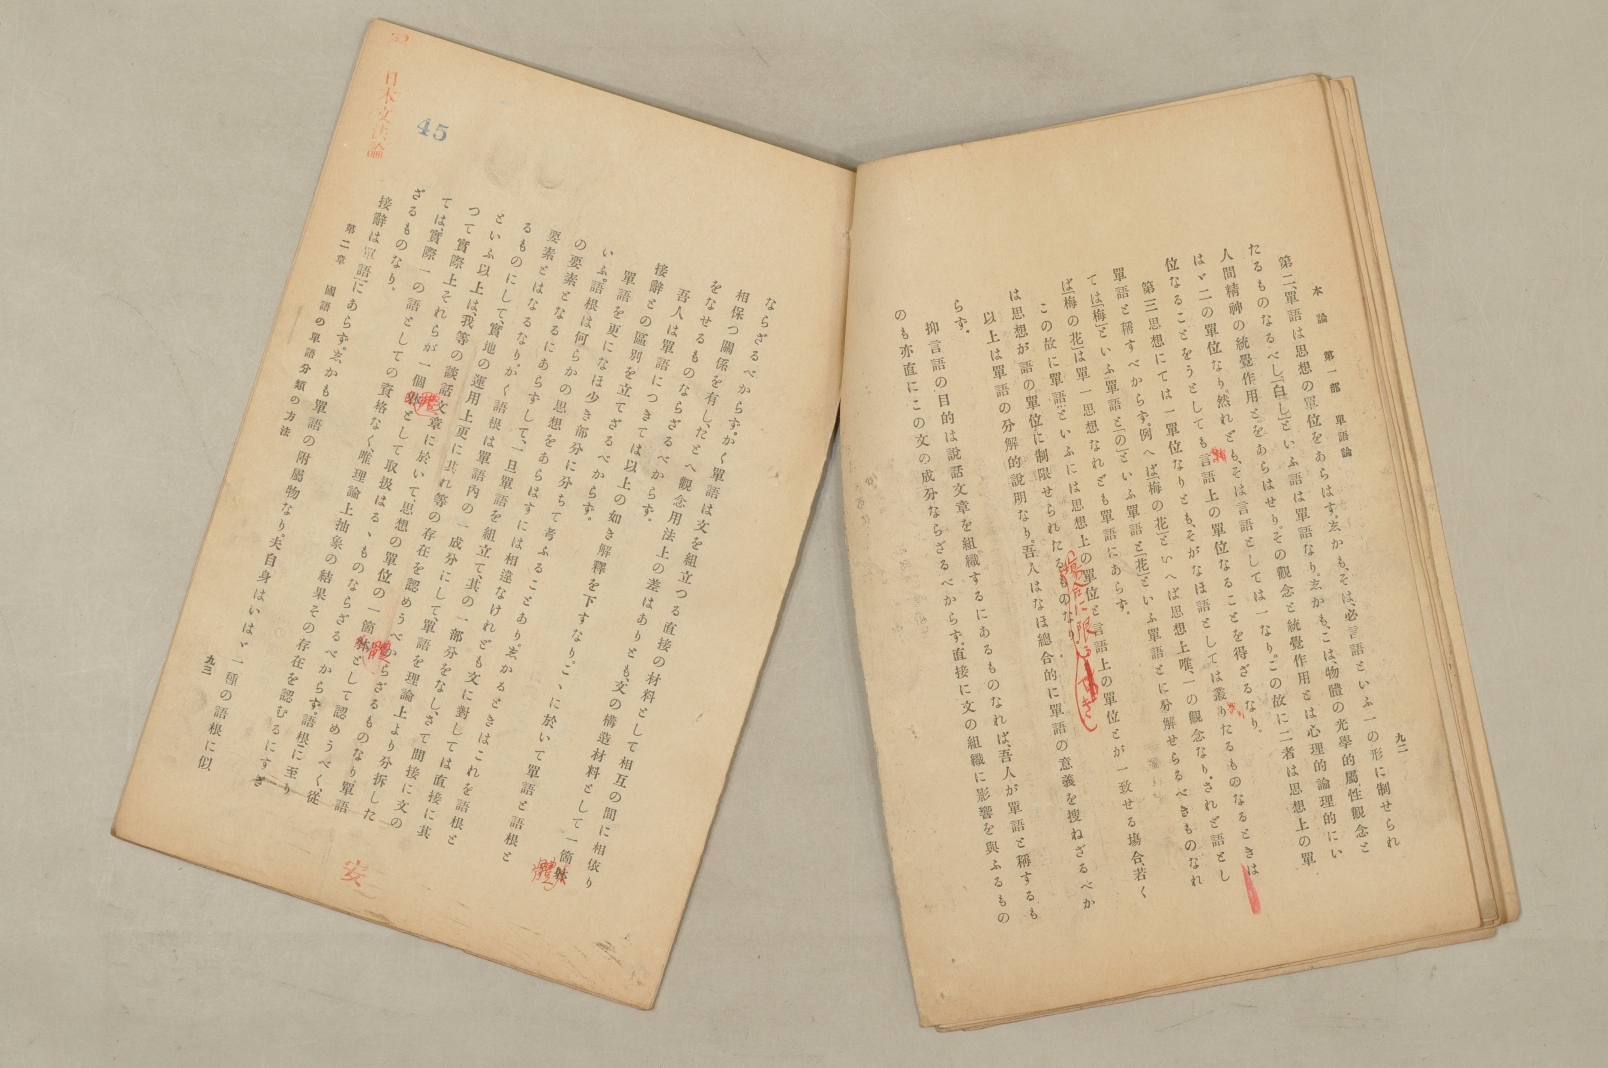 本論 第一部 單語論
九二
第二、單語は思想の單位をあらはす。玄かも、そは、必言語といふ一の形に制せられ
たるものなるべし。「白し」といふ語は單語なり。玄かも、こは、物體の光學的屬性觀念と
人間精神の統覺作用とをあらはせり。その觀念と統覺作用とは心理的論理的にい
はゞ二の單位なり然れども、そは言語としては一なり。この故に二者は思想上の單
位なることをうとしても言語上の單位なることを得ざるなり。
第三思想にては一單位なりとも、そがなほ語としては叢りたるものなるときは
單語と稱すべからず。例へば「梅の花」といへば思想上唯、一の觀念なり。されど語とし
ては「梅」といふ單語と「の」といふ單語と「花」といふ單語とに分解せらるべきものなれ
ば「梅の花」は單一思想なれども單語にあらず。
この故に單語といふには思想上の單位と言語上の單位とが一致せる塲合、若く
は思想が語の單位に制限せられたるものなり。
塲合に限るべきし
以上は單語の分解的說明なり。吾人はなほ總合的に單語の意義を搜ねざるべか
らず。
抑言語の目的は說話文章を組織するにあるものなれば、吾人が單語と稱するも
のも亦直にこの文の成分ならざるべからず。直接に文の組織に影響を與ふるもの
ならざるべからず。かく單語は文を組立つる直接の材料として相互の間に相依り
相保つ關係を有し、たとへ觀念用法上の差はありとも、文の構造材料として一箇躰
體
をなせるものならざるべからず。
吾人は單語につきては以上の如き解釋を下すなり。こゝに於いて單語と語根と
接辭との區別を立てざるべからず。
單語を更になほ少き部分に分ちて考ふることあり。玄かるときはこれを語根と
いふ。語根は何らかの思想をあらはすには相違なけれども文に對しては直接に其
の要素となるにあらずして、一旦單語を組立て、其の一部分をなし、さて間接に文の
要素とはなるなり。かく語根は單語內の一成分にして、單語を理論上より分拆した
るものにして、實地の運用上更に其れ等の存在を認めうべからざるものなり。單語
といふ以上は、我等の談話文章に於いて思想の單位の一箇躰として認めうべく、從
體
つて實際上それらが一個躰として取扱はるゝものならざるべからず。語根に至り
體
ては、實際一の語としての資格なく、唯理論上抽象の結果その存在を認むるにすぎ
ざるものなり。
接辭は單語にあらず。玄かも單語の附屬物なり。夫自身はいはゞ一種の語根に似
第二章 國語の單語分類の方法
九三
45
日本文法論
安